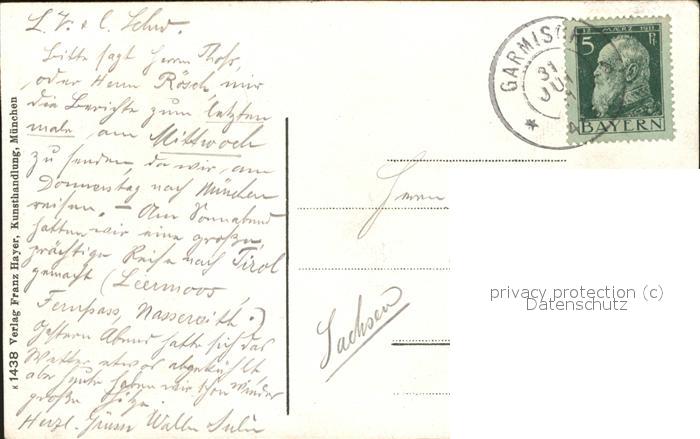 L. V. & C. Schw.
Bitte sagt Herrn Thofs,
oder Herrn Rösch mir
die Berichte zum letzten
male am Mittwoch
zu senden, da wir am
Donnerstag nach München
reisen. – Am Sonnabend
hatten wir eine große,
prächtige Reise nach Tirol
gemacht (Leermoos,
Fernpass, Nassereith.)
Gestern Abend hatte sich das
Wetter etwas abgekühlt
aber heute haben wir schon wieder
große Hitze.
Herzl. Grüsse
K 1438 Verlag Franz Hayer, Kunsthandlung, München
GARMISCH
31
JUL
12 MÄRZ 1911
5 Pf
BAYERN
Herrn
Sachsen
privacy protection (c)
Datenschutz